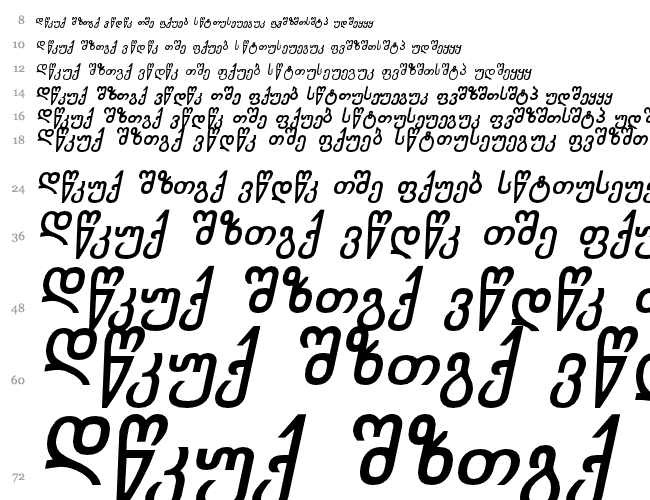 8 დწკუქ შზთგქ ვწდწკ თშე ფქუებ სწტთუსეუეგუკ ფვშზშთსშტპ უდშეყყყ
10 დწკუქ შზთგქ ვწდწკ თშე ფქუებ სწტთუსეუეგუკ ფვშზშთსშტპ უდშეყყყ
12 დწკუქ შზთგქ ვწდწკ თშე ფქუებ სწტთუსეუეგუკ ფვშზშთსშტპ უდშეყყყ
14 დწკუქ შზთგქ ვწდწკ თშე ფქუებ სწტთუსეუეგუკ ფვშზშთსშტპ უდშეყყყ
16 დწკუქ შზთგქ ვწდწკ თშე ფქუებ სწტთუსეუეგუკ ფვშზშთსშტპ
18 დწკუქ შზთგქ ვწდწკ თშე ფქუებ სწტთუსეუეგუკ ფვშზშთ
24 დწკუქ შზთგქ ვწდწკ თშე ფქუებ სწტთუსეუე
36 დწკუქ შზთგქ ვწდწკ თშე ფქუ
48 დწკუქ შზთგქ ვწდწკ
60 დწკუქ შზთგქ ვწ
72 დწკუქ შზთგქ